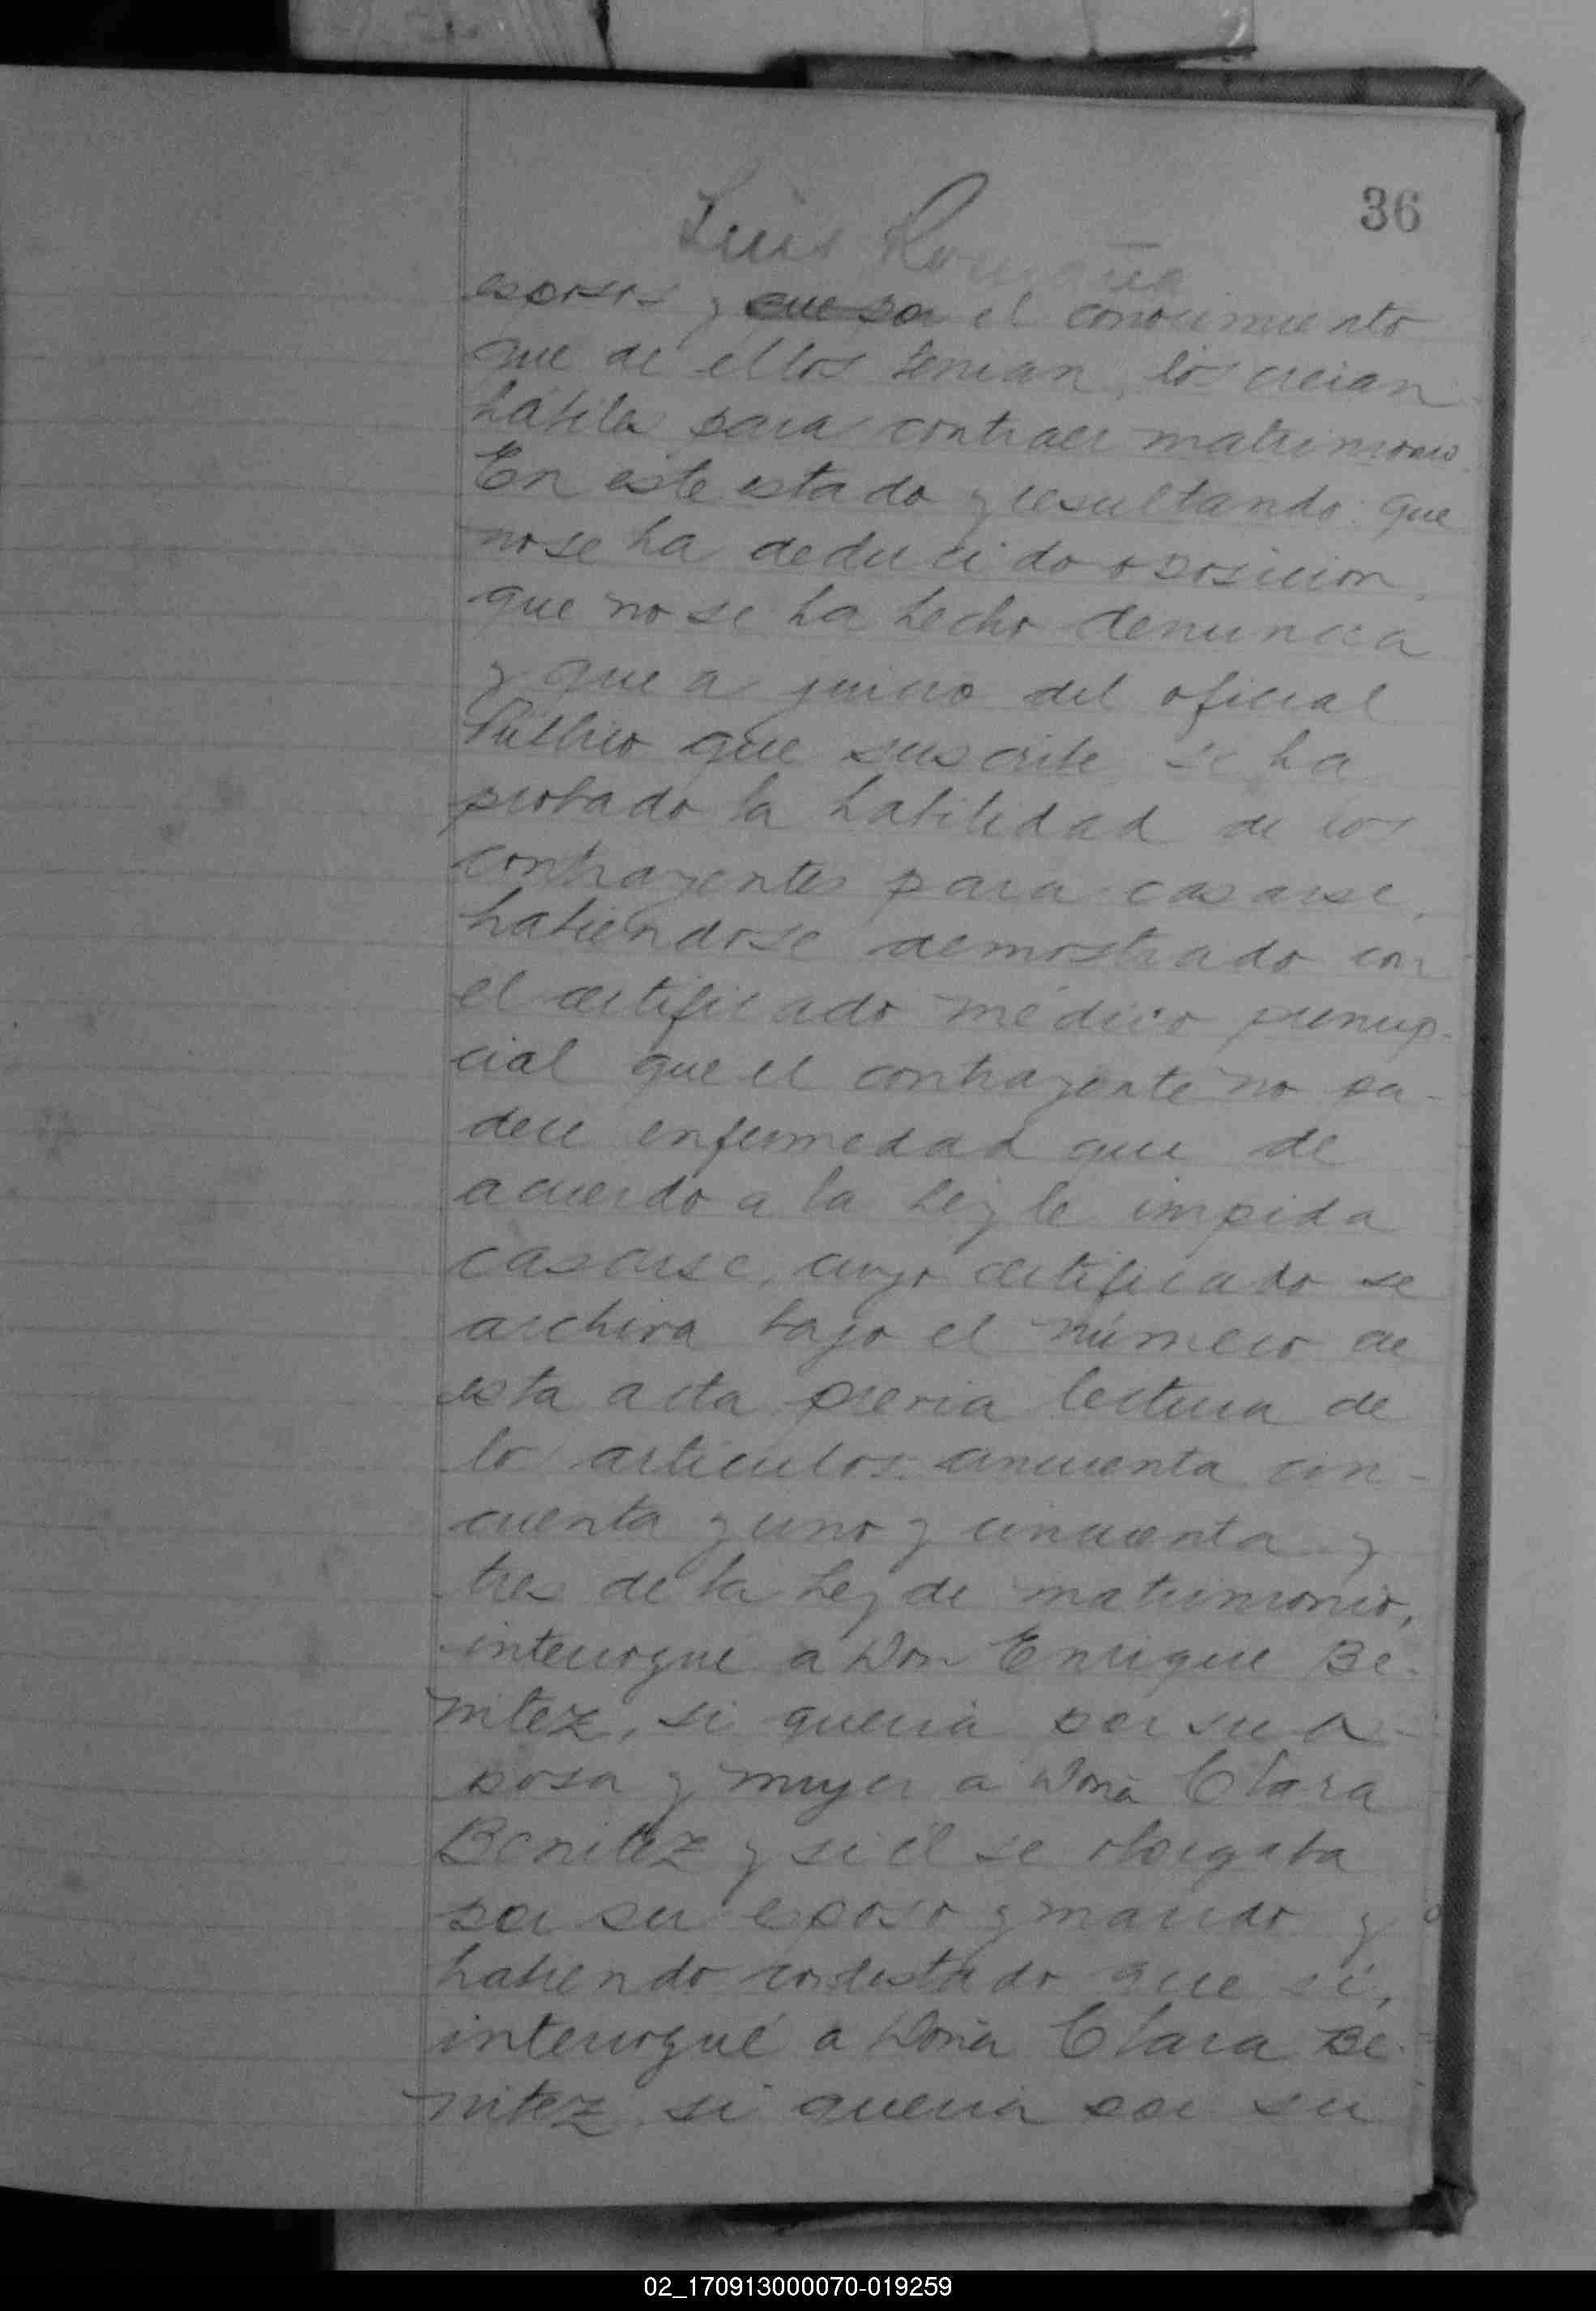 36
Luis Romaña
esposos y que por el conocimiento
que de ellos tenian, los creian
hábiles para contraer matrimonio.
En este estado y resultando que
no se ha deducido oposicion,
que no se ha hecho denuncia
y que a juicio del oficial
Público que suscribe se ha
probado la habilidad de los
contrayentes para casarse,
habiendose demostrado con
el certificado médico prenup-
cial que el contrayente no pa-
dece enfermedad que de
acuerdo a la Ley le impida
casarse, cuyo certificado se
archiva bajo el número de
esta acta previa lectura de
lo articulos cincuenta cin-
cuenta y uno y cincuenta y
tres de la Ley de matrimonio,
interrogué a Don Enrique Be-
nitez, si queria por su es-
posa y mujer a Doña Clara
Benitez y si él se otorgaba
por su esposo y marido y
habiendo contestado que si,
interrogué a Doña Clara Be-
nitez si queria por su
02_170913000070-019259